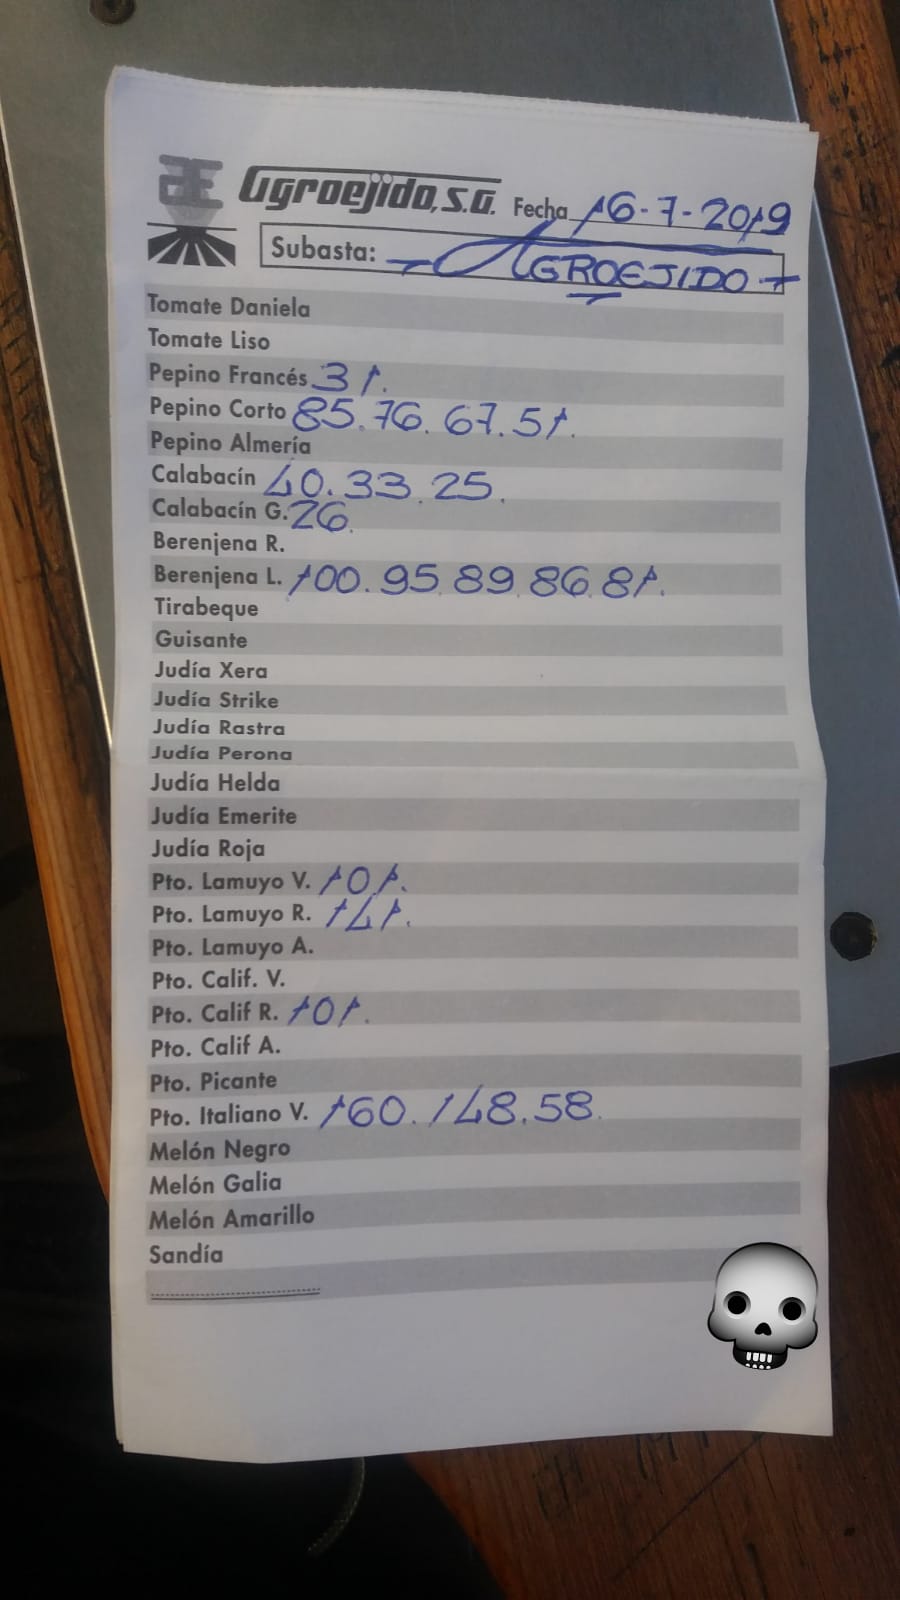 Agroejido, S.A. Fecha 16-7-2019
Subasta: AGROEJIDO
Tomate Daniela
Tomate Liso
Pepino Francés 31.
Pepino Corto 85.76.67.51.
Pepino Almería
Calabacín 40.33.25.
Calabacín G. 26.
Berenjena R.
Berenjena L. 100.95.89.86.81.
Tirabeque
Guisante
Judía Xera
Judía Strike
Judía Rastra
Judía Perona
Judía Helda
Judía Emerite
Judía Roja
Pto. Lamuyo V. 101.
Pto. Lamuyo R. 141.
Pto. Lamuyo A.
Pto. Calif. V.
Pto. Calif R. 101.
Pto. Calif A.
Pto. Picante
Pto. Italiano V. 160.148.58.
Melón Negro
Melón Galia
Melón Amarillo
Sandía